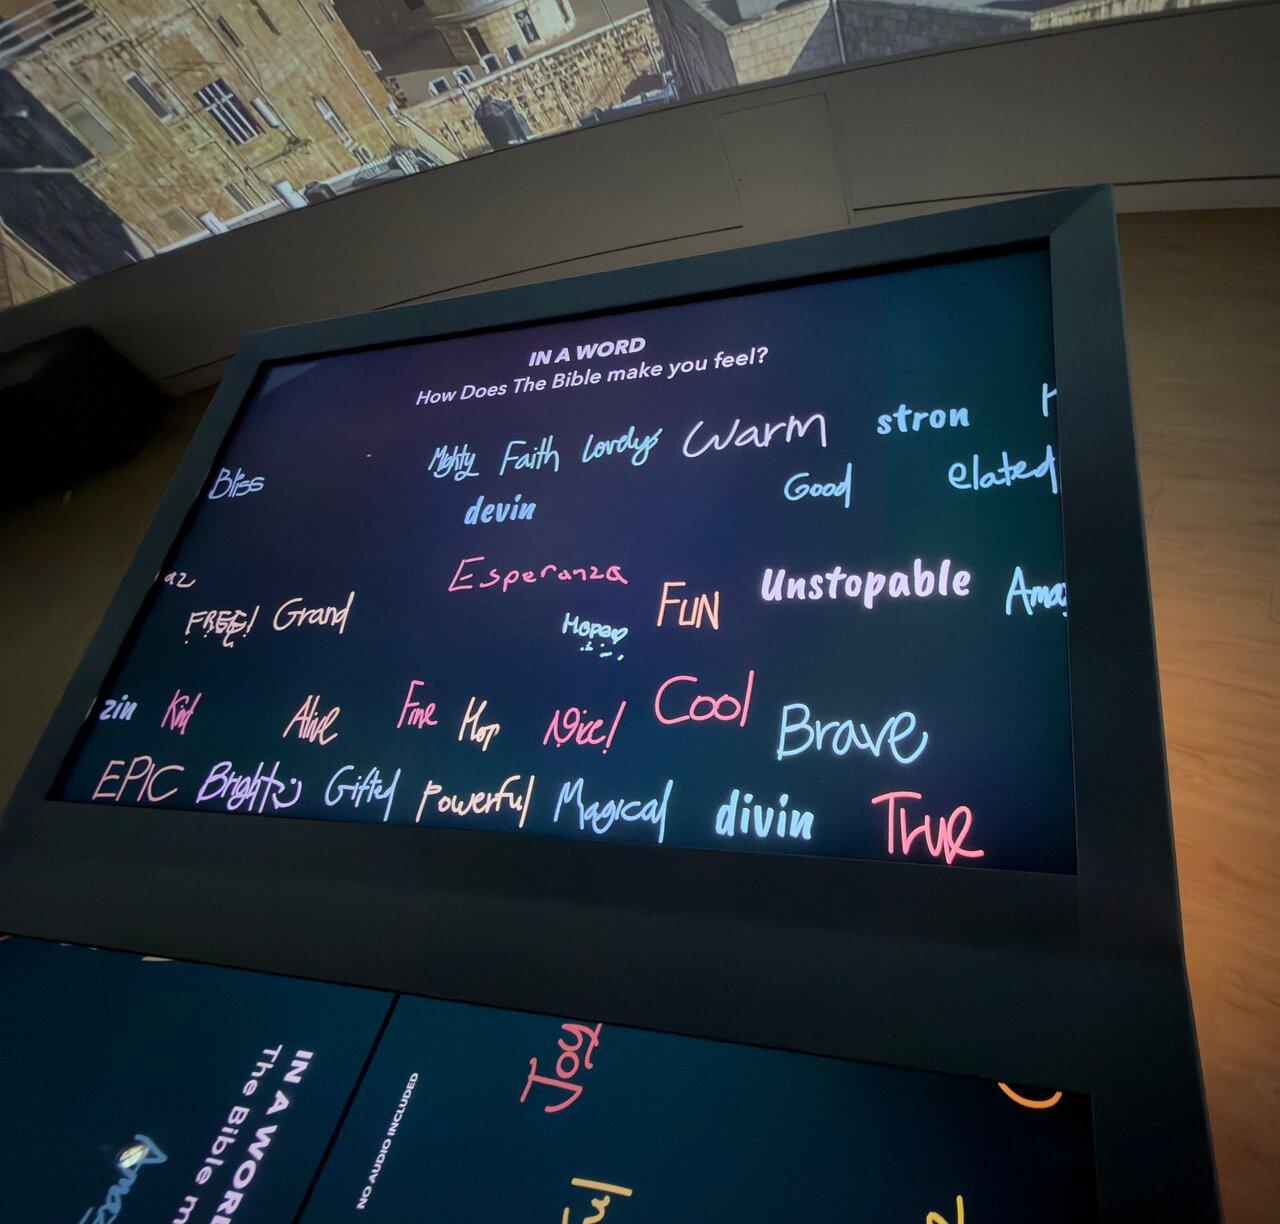 IN A WORD
How Does The Bible make you feel?
Mighty Faith Lovely Warm stron
Bliss devin Good elated
az Esperanza FUN Unstopable Ama
FREE! Grand Hope
zin Kind Alive Fine Hop Nice! Cool Brave
EPIC Bright Gifted Powerful Magical divin True
IN A WORD
The Bible m
NO AUDIO INCLUDED
Joy
Amaz
ful